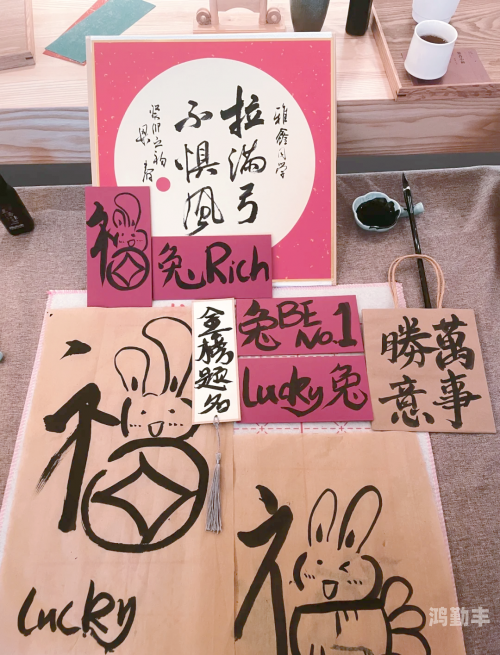 雅鑫同学
拉满弓
不惧风
福
兔Rich
金榜题名
兔BE No.1
Lucky兔
萬事
勝意
福
Lucky
福
鸿勤丰